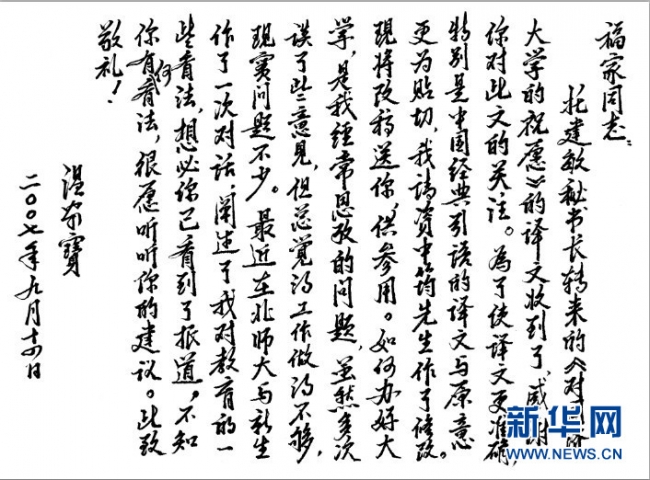 福家同志:
托建敏秘书长转来的《对
大学的祝愿》的译文收到了,感谢
你对此文的关注。为了使译文更准确,
特别是中国经典引语的译文与原意
更为贴切,我请资中筠先生作了修改。
现将改稿送你,供参用。如何办好大
学,是我经常思考的问题,虽然多次
谈了些意见,但总觉得工作做得不够,
现实问题不少。最近在北师大与新生
作了一次对话,阐述了我对教育的一
些看法,想必你已看到了报道,不知
你有何看法,很愿听听你的建议。此致
敬礼!
温家寶
二〇〇七年九月十四日
新华网
WWW.NEWS.CN